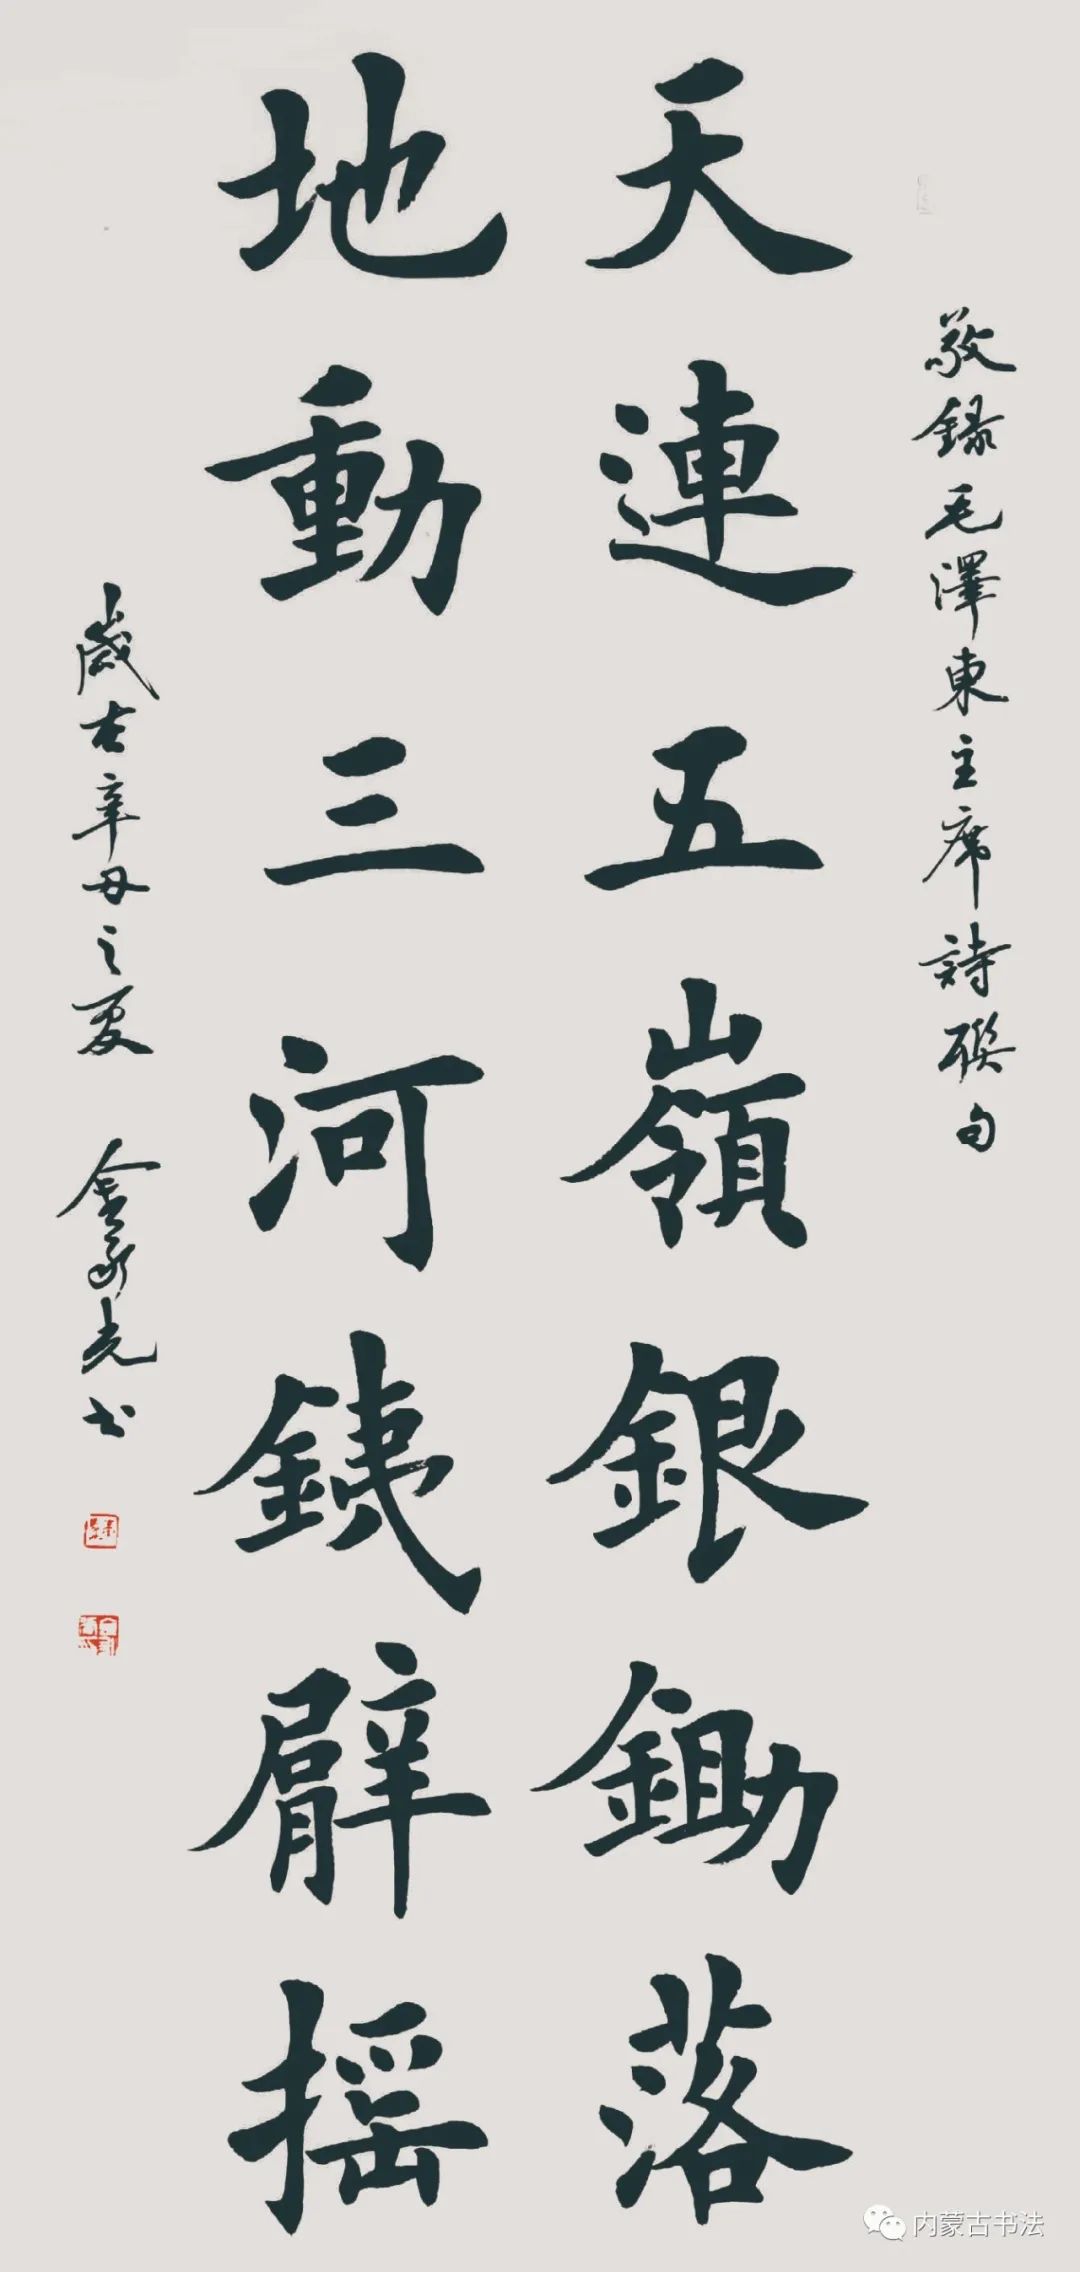 敬録毛澤東主席詩聯句
天連五嶺銀鋤落
地動三河鐵臂摇
歲在辛丑之夏 金象光书
内蒙古书法